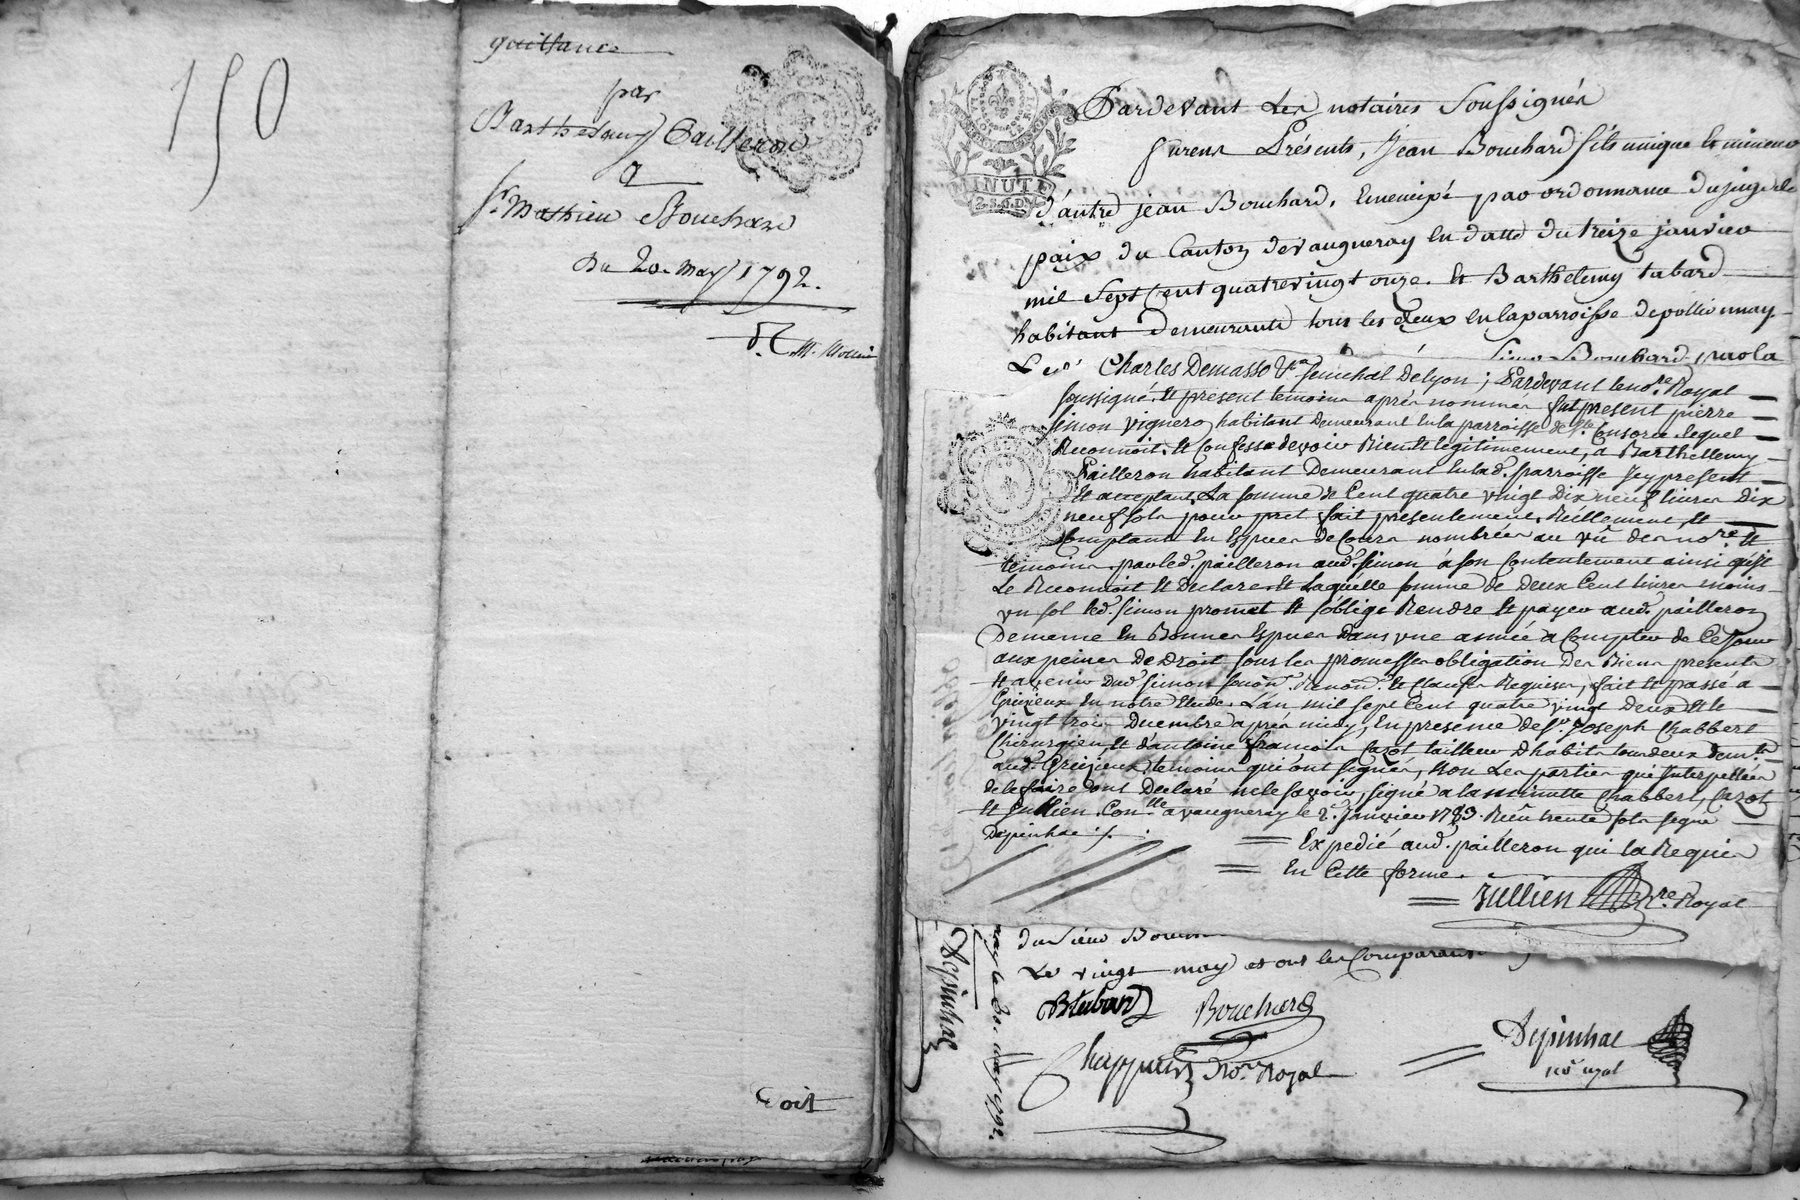 150
quittance
par
Barthelemy Pailleron
a
Sr. Mathieu Bouchard
Du 20. May 1792.
Coit
MINUTE
2.S.6.D.
Pardevant Les notaires Soussignés
furent Présents, Jean Bouchard fils unique et mineur
d'autre Jean Bouchard, Emencipé par ordonnance du juge de
paix du Canton de vaugneray En datte du treize janvier
mil Sept Cent quatre vingt onze. Et Barthelemy tabard
habitant demeurants tous les deux en la parroisse de pollionnay
Bouchard par la
Charles Demasso senechal De lyon; Pardevant le nore. Royal
soussigné, Et present temoins aprés nommés fut present pierre
Simon vigneron habitant Demeurant En la parroisse de Ste Consorce lequel
Reconnoit, Et Confesse devoir Bien Et legitimement, a Barthellemy
Pailleron habitant Demeurant En lad. parroisse Icy present
Et acceptant, La somme de Cent quatre vingt Dix neuf livres Dix
neuf sols pour pret fait presentement, Réellement, Et
Comptant En Especes de Cours nombrées au vû des nore. Et
temoins, par led. pailleron aud. simon à son Contentement ainsi qu'il
Le Reconnoit Et Declare Et Laquelle somme de Deux Cent livres moins
vn sol led. simon promet Et s'oblige Rendre Et payer aud. pailleron
De meme En Bonnes Especes Dans vne année a Compter de Ce Jour
aux peines De Droit sous les promesses obligation Des Biens presents
Et avenir Dud. simon Renon. Et Clauses Requises, fait Et passé a
Grézieux En notre Etude. L'an mil sept Cent quatre vingt Deux Et le
vingt trois Decembre aprés midy, En presence de Sr. Joseph Chabbert
Chirurgien, Et d'antoine françois Cazot tailleur D'habits tous deux Demts.
aud. Grézieux, temoins qui ont signés, Non Les parties qui Interpellées
de le faire ont Declaré ne le sçavoir, signé a la minutte Chabbert, Cazot
Et Jullien. Conlle. a vaugneray le 2. Janvier 1783. Reçu trente sols signé
Depinhac ./.
Expedié aud. pailleron qui la Requis
En Cette forme.
Jullien nre. Royal
du Sieur
Le vingt may et ont les Comparants
BTabard Bouchard
Depinhac
nore. Royal
nore royal
Depinhac
may 1792.